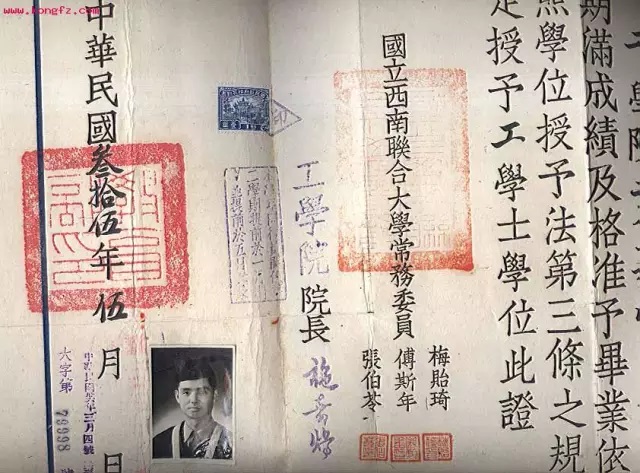 期滿成績及格准予畢業依
照學位授予法第三條之規
定授予工學士學位此證
國立西南聯合大學常務委員
梅貽琦
傅斯年
張伯苓
工學院院長
施嘉煬
中華民國叁拾伍年伍月 日
大字第79998號
www.kongfz.com